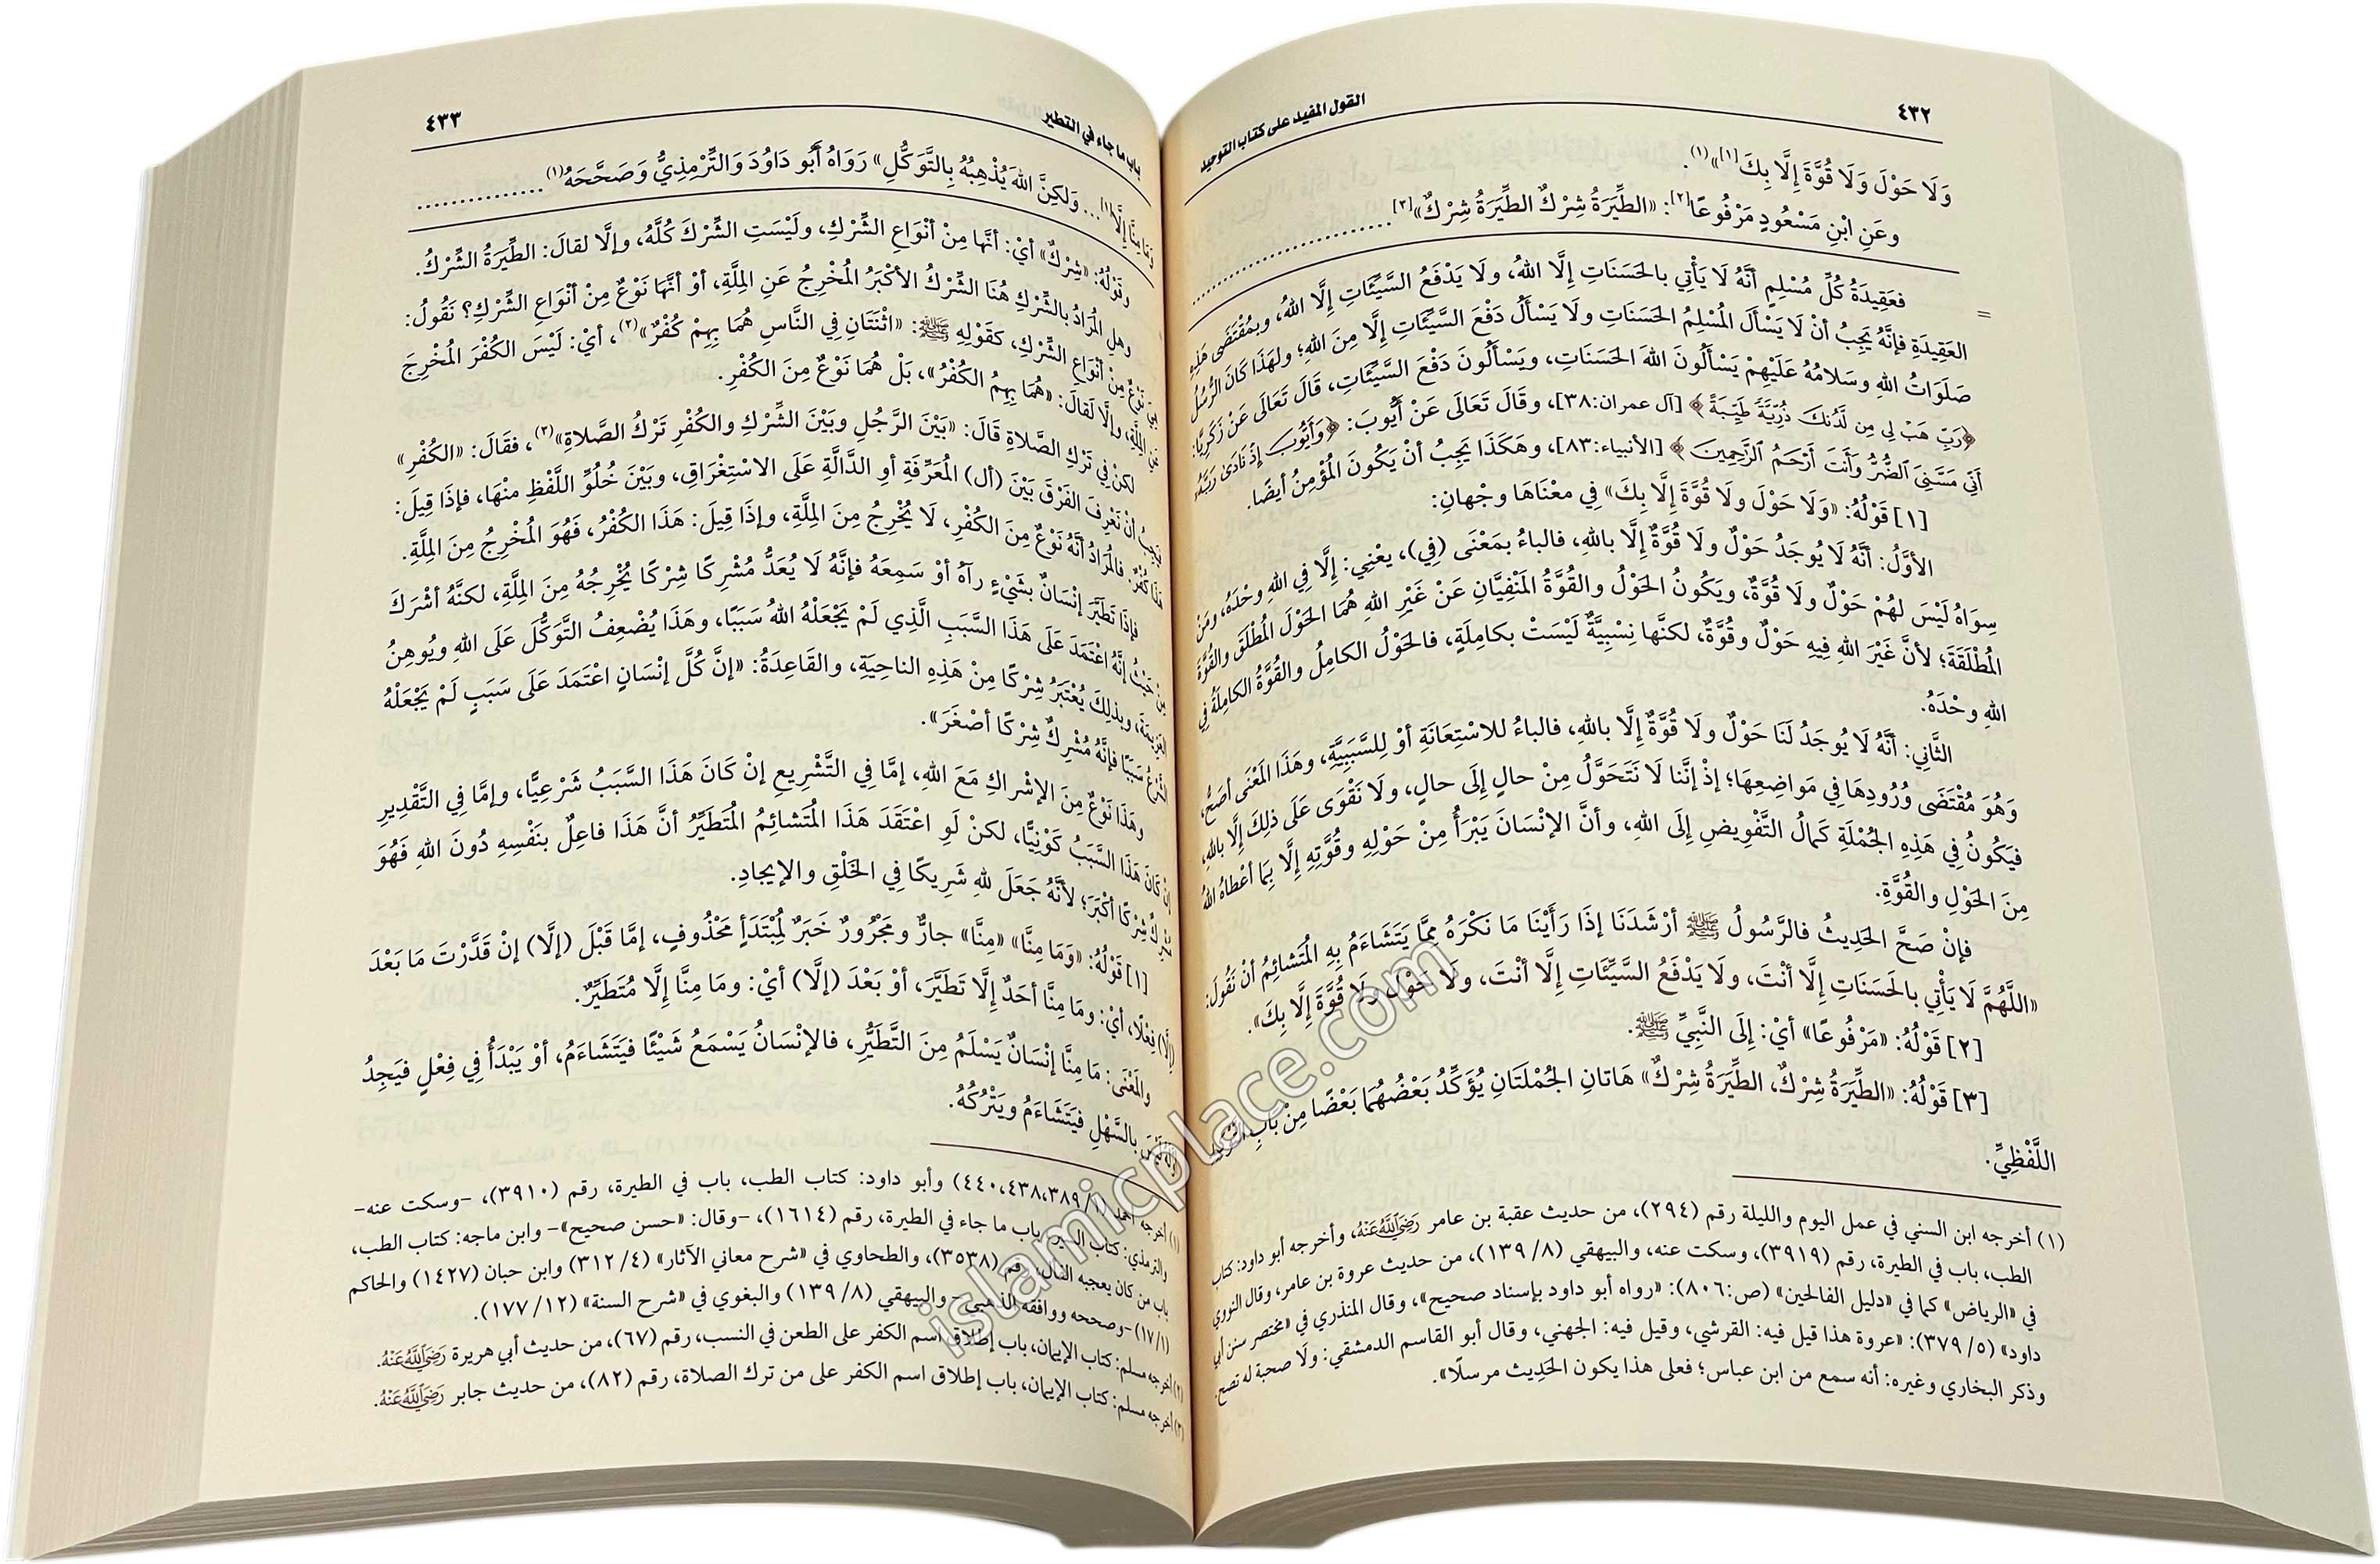 ٤٣٢
القول المفيد على كتاب التوحيد
وَلَا حَوْلَ وَلَا قُوَّةَ إِلَّا بِكَ[١]»(١).
وعَنِ ابْنِ مَسْعُودٍ مَرْفُوعًا[٢]: «الطِّيَرَةُ شِرْكٌ الطِّيَرَةُ شِرْكٌ»[٣]
= فعَقِيدَةُ كُلِّ مُسْلِمٍ أنَّهُ لَا يَأْتِي بالحَسَنَاتِ إِلَّا اللهُ، ولَا يَدْفَعُ السَّيِّئَاتِ إِلَّا اللهُ، وبمُقْتَضَى هَذِهِ
العَقِيدَةِ فإنَّهُ يَجِبُ أنْ لَا يَسْأَلَ المُسْلِمُ الحَسَنَاتِ ولَا يَسْأَلُ دَفْعَ السَّيِّئَاتِ إِلَّا مِنَ اللهِ؛ ولهَذَا كَانَ الرُّسُلُ
صَلَوَاتُ اللهِ وسَلامُهُ عَلَيْهِمْ يَسْأَلُونَ اللهَ الحَسَنَاتِ، ويَسْأَلُونَ دَفْعَ السَّيِّئَاتِ، قَالَ تَعَالَى عَنْ زَكَرِيَّا:
﴿رَبِّ هَبْ لِى مِن لَّدُنكَ ذُرِّيَّةً طَيِّبَةً﴾ [آل عمران:٣٨]، وقَالَ تَعَالَى عَنْ أَيُّوبَ: ﴿وَأَيُّوبَ إِذْ نَادَىٰ رَبَّهُۥٓ
أَنِّى مَسَّنِىَ ٱلضُّرُّ وَأَنتَ أَرْحَمُ ٱلرَّٰحِمِينَ﴾ [الأنبياء:٨٣]، وهَكَذَا يَجِبُ أنْ يَكُونَ المُؤْمِنُ أيضًا.
[١] قَوْلُهُ: «وَلَا حَوْلَ ولَا قُوَّةَ إِلَّا بِكَ» فِي معْنَاهَا وجْهانِ:
الأوَّلُ: أنَّهُ لَا يُوجَدُ حَوْلٌ ولَا قُوَّةٌ إِلَّا باللهِ، فالباءُ بمَعْنَى (فِي)، يعْنِي: إِلَّا فِي اللهِ وحْدَهُ، ومَنْ
سِوَاهُ لَيْسَ لهُمْ حَوْلٌ ولَا قُوَّةٌ، ويَكُونُ الحَوْلُ والقُوَّةُ المَنْفِيَّانِ عَنْ غَيْرِ اللهِ هُمَا الحَوْلَ المُطْلَقَ والقُوَّةَ
المُطْلَقَةَ؛ لأنَّ غَيْرَ اللهِ فِيهِ حَوْلٌ وقُوَّةٌ، لكنَّها نِسْبِيَّةٌ لَيْسَتْ بكامِلَةٍ، فالحَوْلُ الكامِلُ والقُوَّةُ الكامِلَةُ فِي
اللهِ وحْدَهُ.
الثَّانِي: أنَّهُ لَا يُوجَدُ لَنَا حَوْلٌ ولَا قُوَّةٌ إِلَّا باللهِ، فالباءُ للاسْتِعَانَةِ أوْ لِلسَّبَبِيَّةِ، وهَذَا المَعْنَى أصَحُّ،
وَهُوَ مُقْتَضَى وُرُودِهَا فِي مَواضِعِهَا؛ إذْ إنَّنا لَا نَتَحَوَّلُ مِنْ حالٍ إلَى حالٍ، ولَا نَقْوَى عَلَى ذلِكَ إلَّا باللهِ،
فيَكُونُ فِي هَذِهِ الجُمْلَةِ كَمالُ التَّفْوِيضِ إلَى اللهِ، وأنَّ الإنْسَانَ يَبْرَأُ مِنْ حَوْلِهِ وقُوَّتِهِ إلَّا بِمَا أعْطَاهُ اللهُ
مِنَ الحَوْلِ والقُوَّةِ.
فإنْ صَحَّ الحَدِيثُ فالرَّسُولُ ﷺ أرْشَدَنَا إذَا رَأَيْنَا مَا نَكْرَهُ مِمَّا يَتَشَاءَمُ بِهِ المُتَشائِمُ أنْ نَقُولَ:
«اللَّهُمَّ لَا يَأْتِي بالحَسَنَاتِ إِلَّا أنْتَ، ولَا يَدْفَعُ السَّيِّئَاتِ إلَّا أنْتَ، ولَا حَوْلَ ولَا قُوَّةَ إلَّا بِكَ».
[٢] قَوْلُهُ: «مَرْفُوعًا» أيْ: إلَى النَّبِيِّ ﷺ.
[٣] قَوْلُهُ: «الطِّيَرَةُ شِرْكٌ، الطِّيَرَةُ شِرْكٌ» هَاتانِ الجُمْلَتَانِ يُؤَكِّدُ بَعْضُهُمَا بَعْضًا مِنْ بَابِ التَّوْكِيدِ
اللَّفْظِيِّ.
(١) أخرجه ابن السني في عمل اليوم والليلة رقم (٢٩٤)، من حديث عقبة بن عامر رَضِيَ اللَّهُ عَنْهُ، وأخرجه أبو داود: كتاب
الطب، باب في الطيرة، رقم (٣٩١٩)، وسكت عنه، والبيهقي (٨/ ١٣٩)، من حديث عروة بن عامر، وقال النووي
في «الرياض» كما في «دليل الفالحين» (ص:٨٠٦): «رواه أبو داود بإسناد صحيح»، وقال المنذري في «مختصر سنن أبي
داود» (٥/ ٣٧٩): «عروة هذا قيل فيه: القرشي، وقيل فيه: الجهني، وقال أبو القاسم الدمشقي: ولَا صحبة له تصح.
وذكر البخاري وغيره: أنه سمع من ابن عباس؛ فعلى هذا يكون الحَدِيث مرسلًا».
باب ما جاء في التطير
٤٣٣
وَمَا مِنَّا إِلَّا[١]... وَلَكِنَّ اللهَ يُذْهِبُهُ بِالتَّوَكُّلِ» رَوَاهُ أَبُو دَاوُدَ وَالتِّرْمِذِيُّ وَصَحَّحَهُ(١)
وقَوْلُهُ: «شِرْكٌ» أيْ: أنَّها مِنْ أنْوَاعِ الشِّرْكِ، ولَيْسَتِ الشِّرْكَ كُلَّهُ، وإلَّا لقالَ: الطِّيَرَةُ الشِّرْكُ.
وهلِ المُرَادُ بالشِّرْكِ هُنَا الشِّرْكُ الأكْبَرُ المُخْرِجُ عَنِ المِلَّةِ، أوْ أنَّهَا نَوْعٌ مِنْ أنْوَاعِ الشِّرْكِ؟ نَقُولُ:
نَوْعٌ مِنْ أنْوَاعِ الشِّرْكِ، كقَوْلِهِ ﷺ: «اثْنَتَانِ فِي النَّاسِ هُمَا بِهِمْ كُفْرٌ»(٢)، أيْ: لَيْسَ الكُفْرَ المُخْرِجَ
عَنِ المِلَّةِ، وإلَّا لَقالَ: «هُمَا بِهِمُ الكُفْرُ»، بَلْ هُمَا نَوْعٌ مِنَ الكُفْرِ.
لكنْ فِي تَرْكِ الصَّلاةِ قَالَ: «بَيْنَ الرَّجُلِ وبَيْنَ الشِّرْكِ والكُفْرِ تَرْكُ الصَّلاةِ»(٣)، فقَالَ: «الكُفْرِ»
فيَجِبُ أنْ نَعْرِفَ الفَرْقَ بَيْنَ (أل) المُعَرِّفَةِ أوِ الدَّالَّةِ عَلَى الاسْتِغْرَاقِ، وبَيْنَ خُلُوِّ اللَّفْظِ منْهَا، فإذَا قِيلَ:
هَذَا كُفْرٌ، فالمُرَادُ أنَّهُ نَوْعٌ مِنَ الكُفْرِ، لَا يُخْرِجُ مِنَ المِلَّةِ، وإذَا قِيلَ: هَذَا الكُفْرُ، فَهُوَ المُخْرِجُ مِنَ المِلَّةِ.
فإذَا تَطَيَّرَ إنْسَانٌ بشَيْءٍ رآهُ أوْ سَمِعَهُ فإنَّهُ لَا يُعَدُّ مُشْرِكًا شِرْكًا يُخْرِجُهُ مِنَ المِلَّةِ، لكنَّهُ أشْرَكَ
مِنْ حَيْثُ إنَّهُ اعْتَمَدَ عَلَى هَذَا السَّبَبِ الَّذِي لَمْ يَجْعَلْهُ اللهُ سَبَبًا، وهَذَا يُضْعِفُ التَّوَكُّلَ عَلَى اللهِ ويُوهِنُ
العَزِيمَةَ، وبذلِكَ يُعْتَبَرُ شِرْكًا مِنْ هَذِهِ الناحِيَةِ، والقَاعِدَةُ: «إنَّ كُلَّ إنْسَانٍ اعْتَمَدَ عَلَى سَبَبٍ لَمْ يَجْعَلْهُ
الشَّرْعُ سَبَبًا فإنَّهُ مُشْرِكٌ شِرْكًا أصْغَرَ».
وهَذَا نَوْعٌ مِنَ الإشْراكِ مَعَ اللهِ، إمَّا فِي التَّشْرِيعِ إنْ كَانَ هَذَا السَّبَبُ شَرْعِيًّا، وإمَّا فِي التَّقْدِيرِ
إنْ كَانَ هَذَا السَّبَبُ كَوْنِيًّا، لكنْ لَوِ اعْتَقَدَ هَذَا المُتَشائِمُ المُتَطَيِّرُ أنَّ هَذَا فاعِلٌ بنَفْسِهِ دُونَ اللهِ فَهُوَ
مُشْرِكٌ شِرْكًا أكْبَرَ؛ لأنَّهُ جَعَلَ للهِ شَرِيكًا فِي الخَلْقِ والإيجادِ.
[١] قَوْلُهُ: «وَمَا مِنَّا» «مِنَّا» جارٌّ ومَجْرُورٌ خَبَرٌ لمُبْتَدَأٍ مَحْذُوفٍ، إمَّا قَبْلَ (إلَّا) إنْ قَدَّرْتَ مَا بَعْدَ
(إلَّا) فِعْلًا، أيْ: ومَا مِنَّا أحَدٌ إلَّا تَطَيَّرَ، أوْ بَعْدَ (إلَّا) أيْ: ومَا مِنَّا إلَّا مُتَطَيِّرٌ.
والمَعْنَى: مَا مِنَّا إنْسَانٌ يَسْلَمُ مِنَ التَّطَيُّرِ، فالإنْسَانُ يَسْمَعُ شَيْئًا فيَتَشَاءَمُ، أوْ يَبْدَأُ فِي فِعْلٍ فيَجِدُ
بالسَّهْلِ فيَتَشَاءَمُ ويَتْرُكُهُ.
(١) أخرجه أحمد (١/ ٣٨٩،٤٣٨،٤٤٠) وأبو داود: كتاب الطب، باب في الطيرة، رقم (٣٩١٠)، -وسكت عنه-
والترمذي: كتاب السير، باب ما جاء في الطيرة، رقم (١٦١٤)، -وقال: «حسن صحيح»- وابن ماجه: كتاب الطب،
باب من كان يعجبه الفأل، رقم (٣٥٣٨)، والطحاوي في «شرح معاني الآثار» (٤/ ٣١٢) وابن حبان (١٤٢٧) والحاكم
(١/ ١٧) -وصححه ووافقه الذهبي- والبيهقي (٨/ ١٣٩) والبغوي في «شرح السنة» (١٢/ ١٧٧).
(٢) أخرجه مسلم: كتاب الإيمان، باب إطلاق اسم الكفر على الطعن في النسب، رقم (٦٧)، من حديث أبي هريرة رَضِيَ اللَّهُ عَنْهُ.
(٣) أخرجه مسلم: كتاب الإيمان، باب إطلاق اسم الكفر على من ترك الصلاة، رقم (٨٢)، من حديث جابر رَضِيَ اللَّهُ عَنْهُ.
islamicplace.com